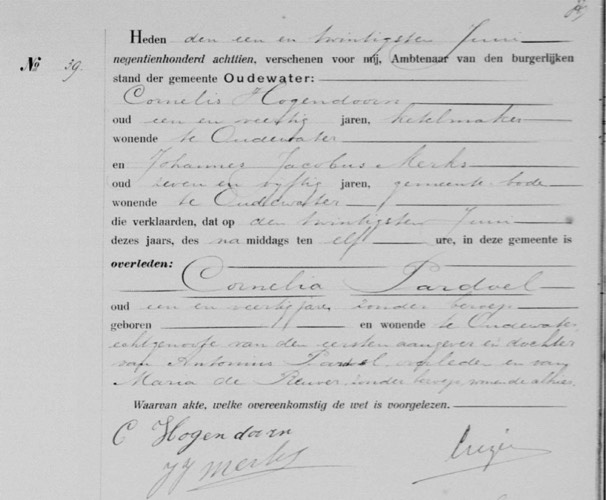 Heden den een en twintigsten Juni
negentienhonderd achttien, verschenen voor mij, Ambtenaar van den burgerlijken
No 39.
stand der gemeente Oudewater:
Cornelis Hogendoorn
oud een en veertig jaren, ketelmaker
wonende te Oudewater
en Johannes Jacobus Merks
oud zeven en vyftig jaren, gemeente-bode
wonende te Oudewater
die verklaarden, dat op den twintigsten Juni
dezes jaars, des na middags ten elf ure, in deze gemeente is
overleden:
Cornelia Pardoel
oud een en veertig jaren zonder beroep
geboren en wonende te Oudewater,
echtgenoote van den eersten aangever en dochter
van Antonius Pardoel, overleden en van
Maria de Reuver, zonder beroep, wonende alhier.
Waarvan akte, welke overeenkomstig de wet is voorgelezen.
C Hogendoorn
JJ Merks